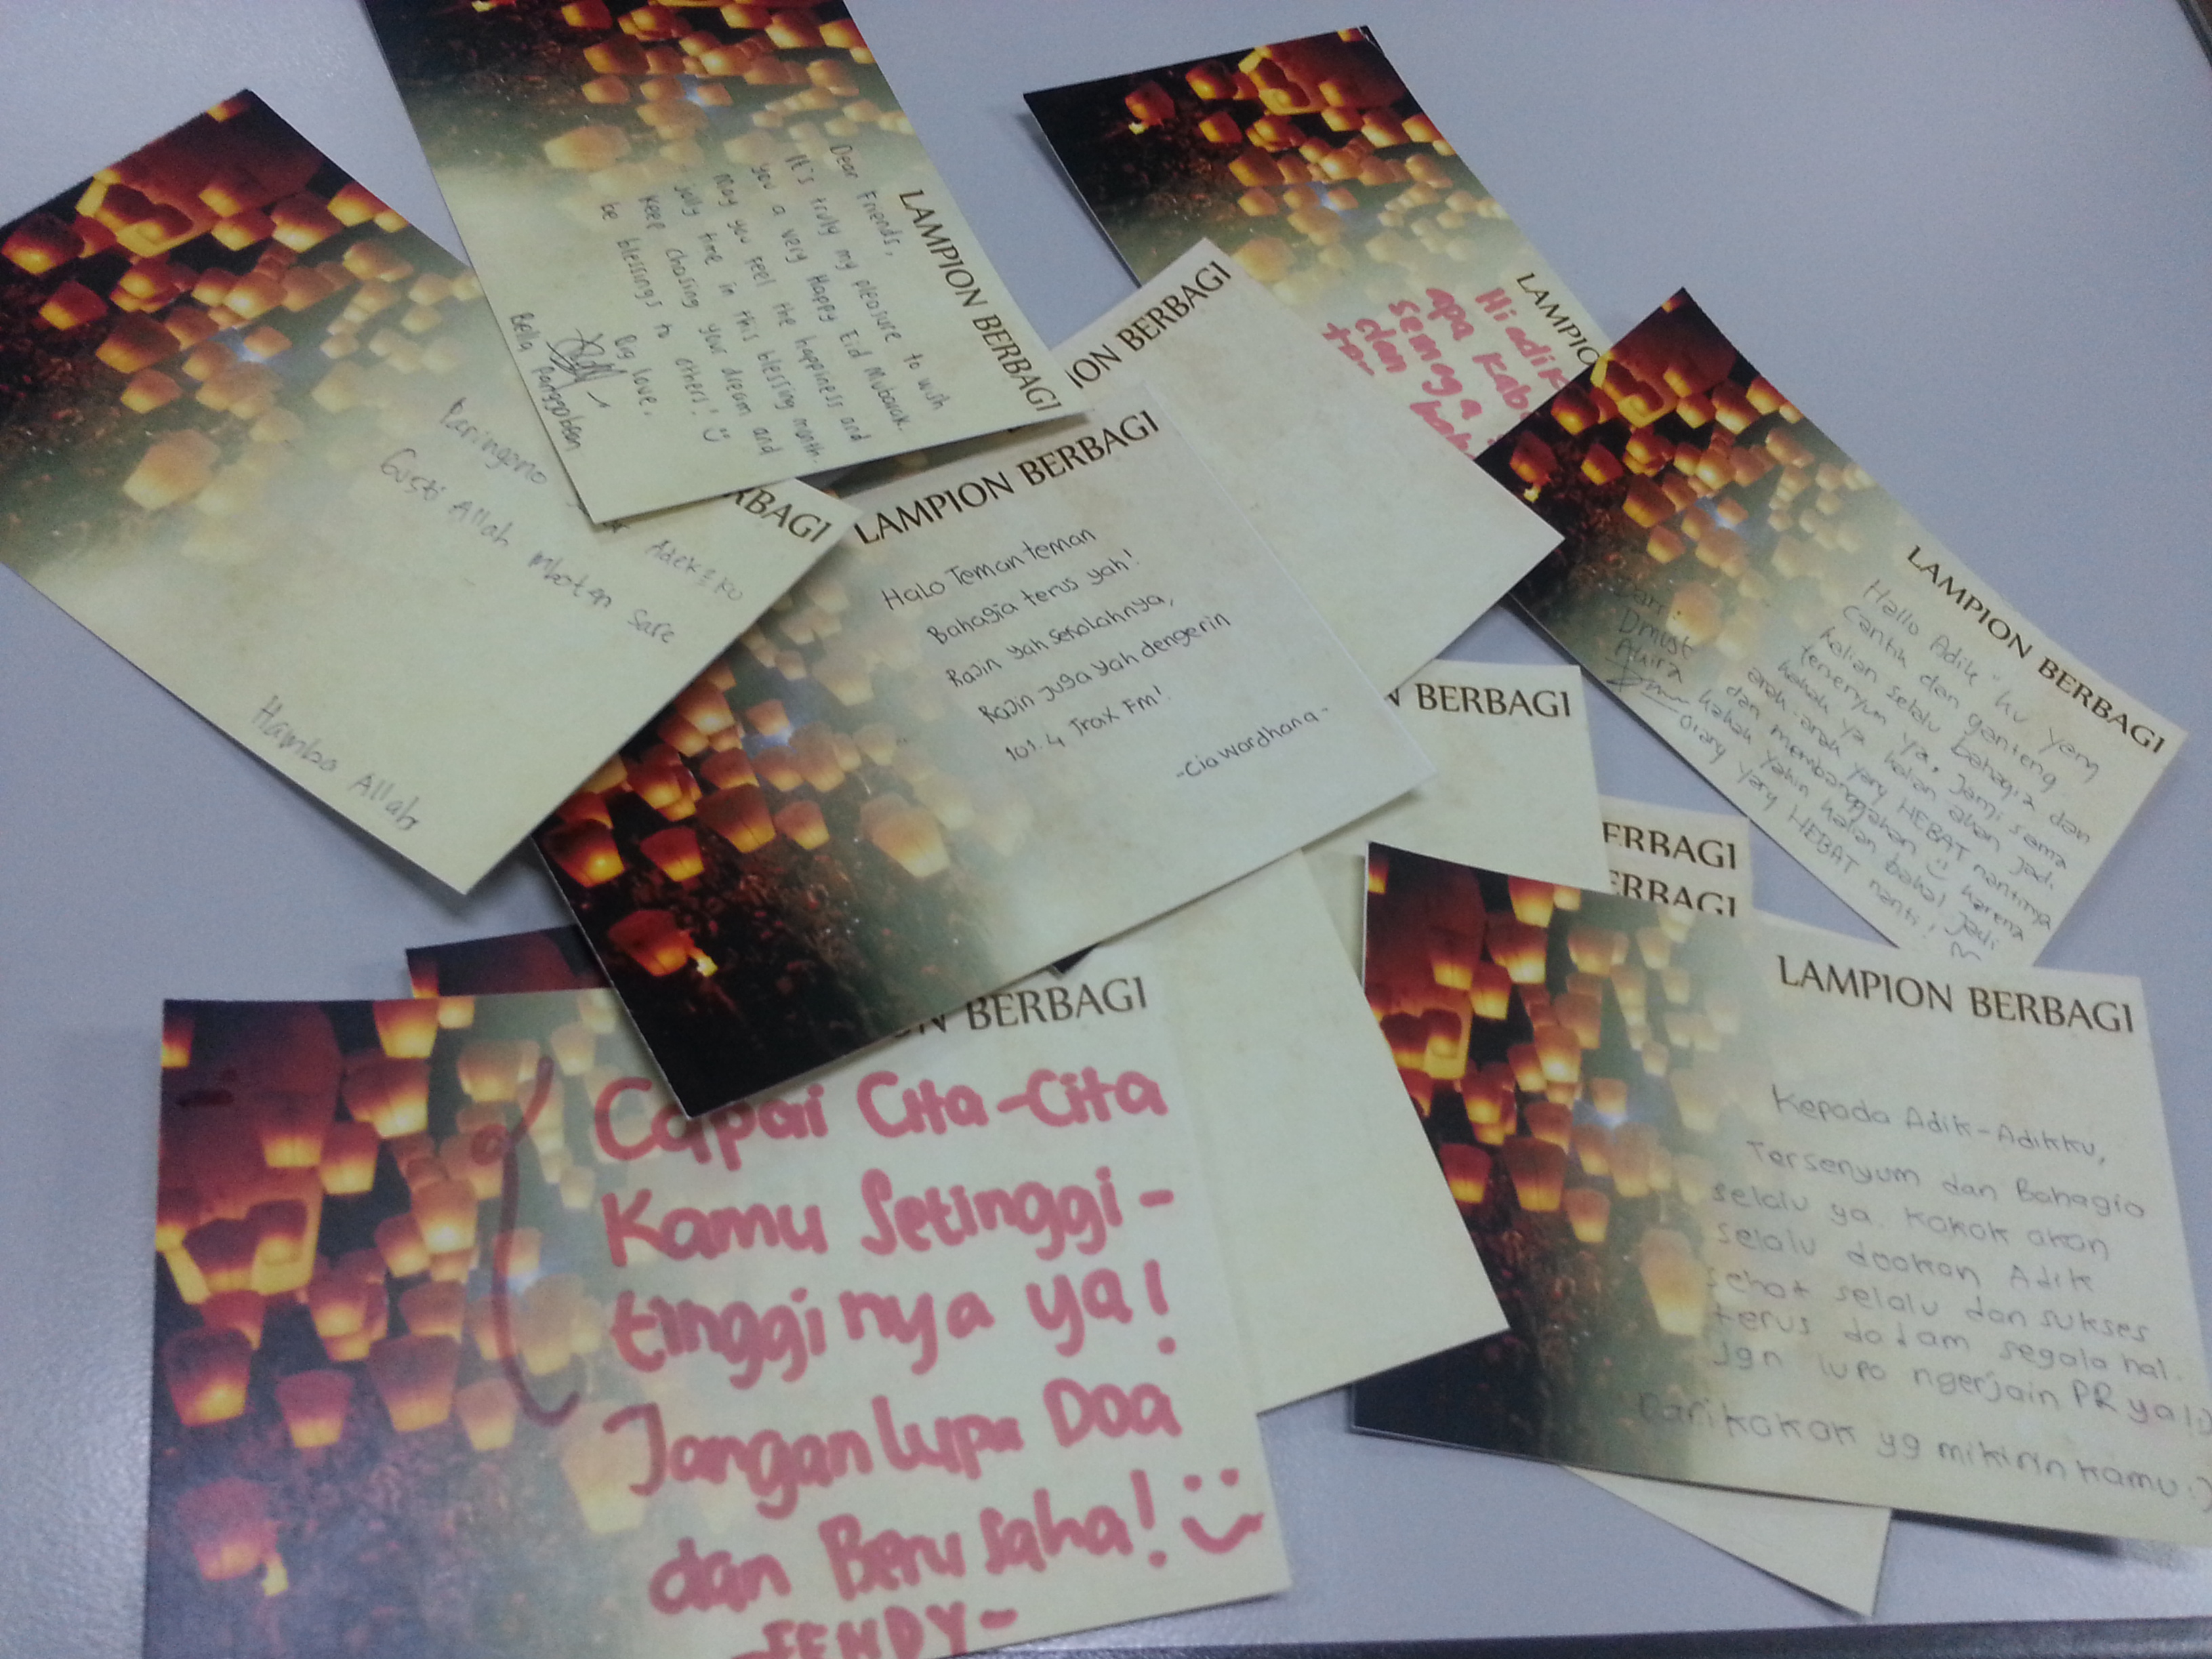 LAMPION BERBAGI
Dear Friends,
It's truly my pleasure to wish
you a very Happy Eid Mubarak.
May you feel the happiness and
jolly time in this blessing month.
Keep chasing your dream and
be blessings to others! :)
Big love,
Bella Panggabean
RBAGI
Paringono Adek2ku
Gusti Allah mboten sare
Hamba Allah
LAMPIO
Hi adik
apa kab
semoga
dan
ION BERBAGI
LAMPION BERBAGI
Halo Teman-teman
Bahagia terus yah!
Rajin yah sekolahnya,
Rajin juga yah dengerin
101.4 Trax FM!
-Cia wardhana-
LAMPION BERBAGI
Hallo Adik"ku yang
cantik dan ganteng
kalian selalu bahagia dan
tersenyum ya. Janji sama
kakak ya kalian akan jadi
anak-anak yang HEBAT nantinya
dan membanggakan :) karena
kakak yakin kalian bakal jadi
orang yang HEBAT nanti!
Dari:
Dmust
Akira
N BERBAGI
ERBAGI
ERBAGI
LAMPION BERBAGI
Kepada Adik-Adikku,
Tersenyum dan Bahagia
selalu ya. Kakak akan
selalu doakan Adik
sehat selalu dan sukses
terus dalam segala hal.
Jgn lupa ngerjain PR ya! :)
Dari kakak yg mikirin kamu :)
ON BERBAGI
Capai Cita-Cita
Kamu Setinggi-
tingginya ya!
Jangan lupa Doa
dan Berusaha! :)
-FENDY-